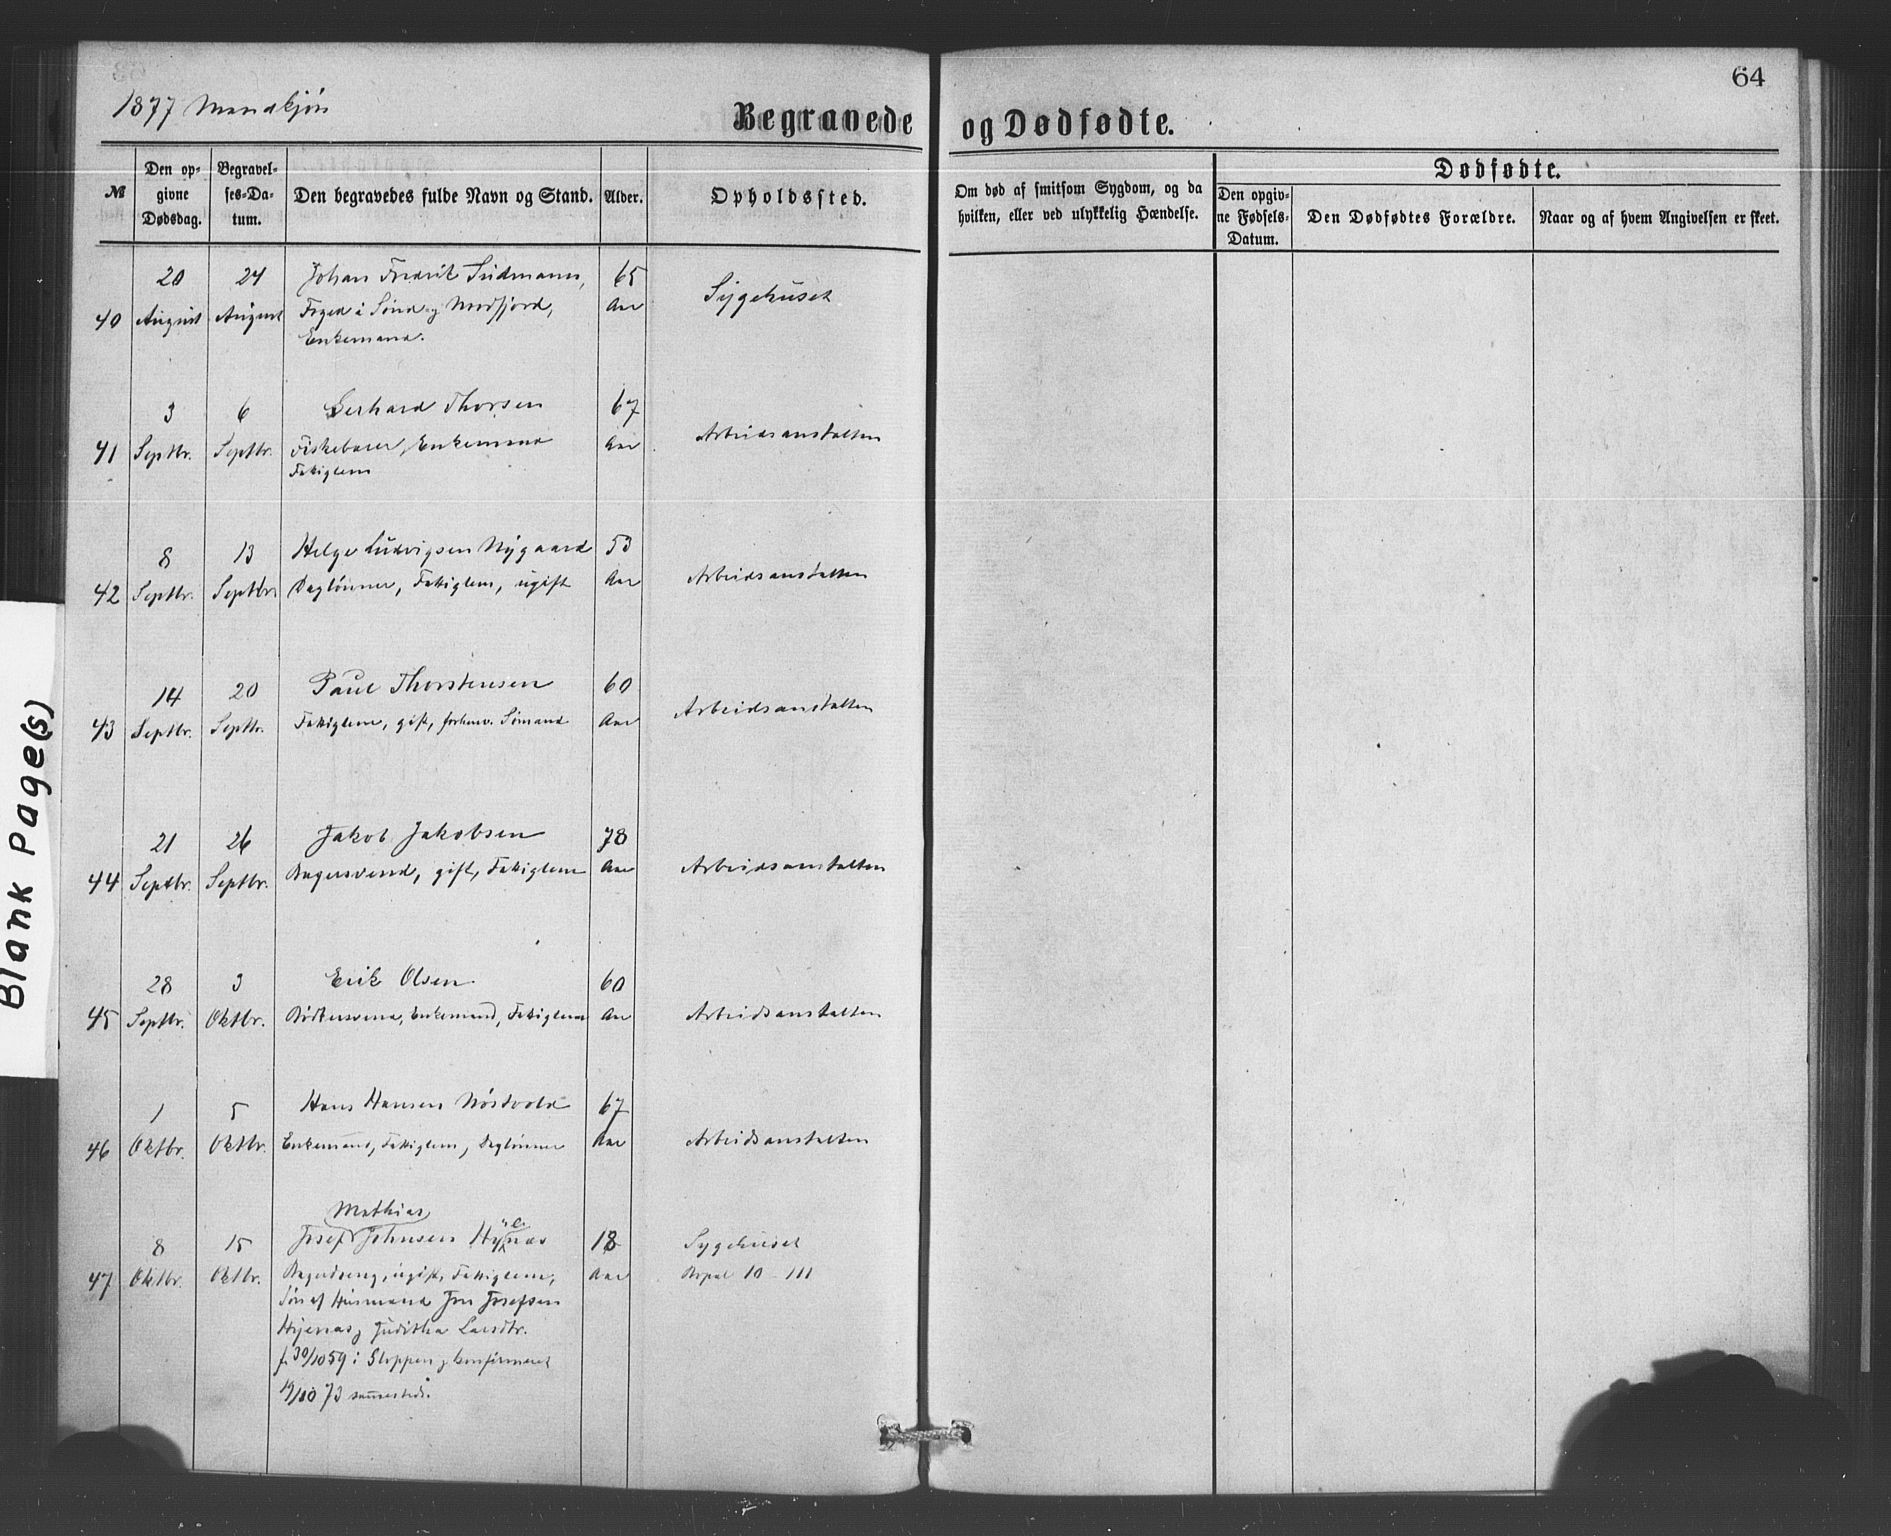 64
1877 Mandkjøn
Begravede og Dødfødte.
№
Den op-
givne
Dødsdag.
Begravel-
ses-Da-
tum.
Den begravedes fulde Navn og Stand.
Alder.
Opholdssted.
Om død af smitsom Sygdom, og da
hvilken, eller ved ulykkelig Hændelse.
Dødfødte.
Den opgiv-
ne Fødsels-
Datum.
Den Dødfødtes Forældre.
Naar og af hvem Angivelsen er skeet.
40 20 August 24 August Johan Fredrik 65 Aar Sygehuset
Foged i Sønd- og Nordfjord,
Enkemand.
41 3 Septbr. 6 Septbr. Gerhard Thorsen 67 Aar Arbeidsanstalten
Fiskebærer, Enkemand
Fattiglem
42 8 Septbr. 13 Septbr. Helge Ludvigsen Nygaard 53 Aar Arbeidsanstalten
Daglönner, Fattiglem, ugift
43 14 Septbr. 20 Septbr. Paul Thorstensen 60 Aar Arbeidsanstalten
Fattiglem, gift, forhenv. Sømand
44 21 Septbr. 26 Septbr. Jakob Jakobsen 78 Aar Arbeidsanstalten
Bagersvend, gift, Fattiglem
45 28 Septbr. 3 Oktbr. Erik Olsen 60 Aar Arbeidsanstalten
Bødkersvend, Enkemand, Fattiglem
46 1 Oktbr. 5 Oktbr. Hans Hansen Nöstvold 67 Aar Arbeidsanstalten
Enkemand, Fattiglem, Daglönner
Mathias
47 8 Oktbr. 15 Oktbr. Josef Johnsen 18 Aar Sygehuset
Bagerdreng, ugift, Fattiglem, 10 - 111
Søn af Husmand Jon Josefsen
Hyenas og Juditha Larsdtr.
f. 30/10 59 i Gloppen og konfirmeret
19/10 73 sammesteds.
Blank Page(s)